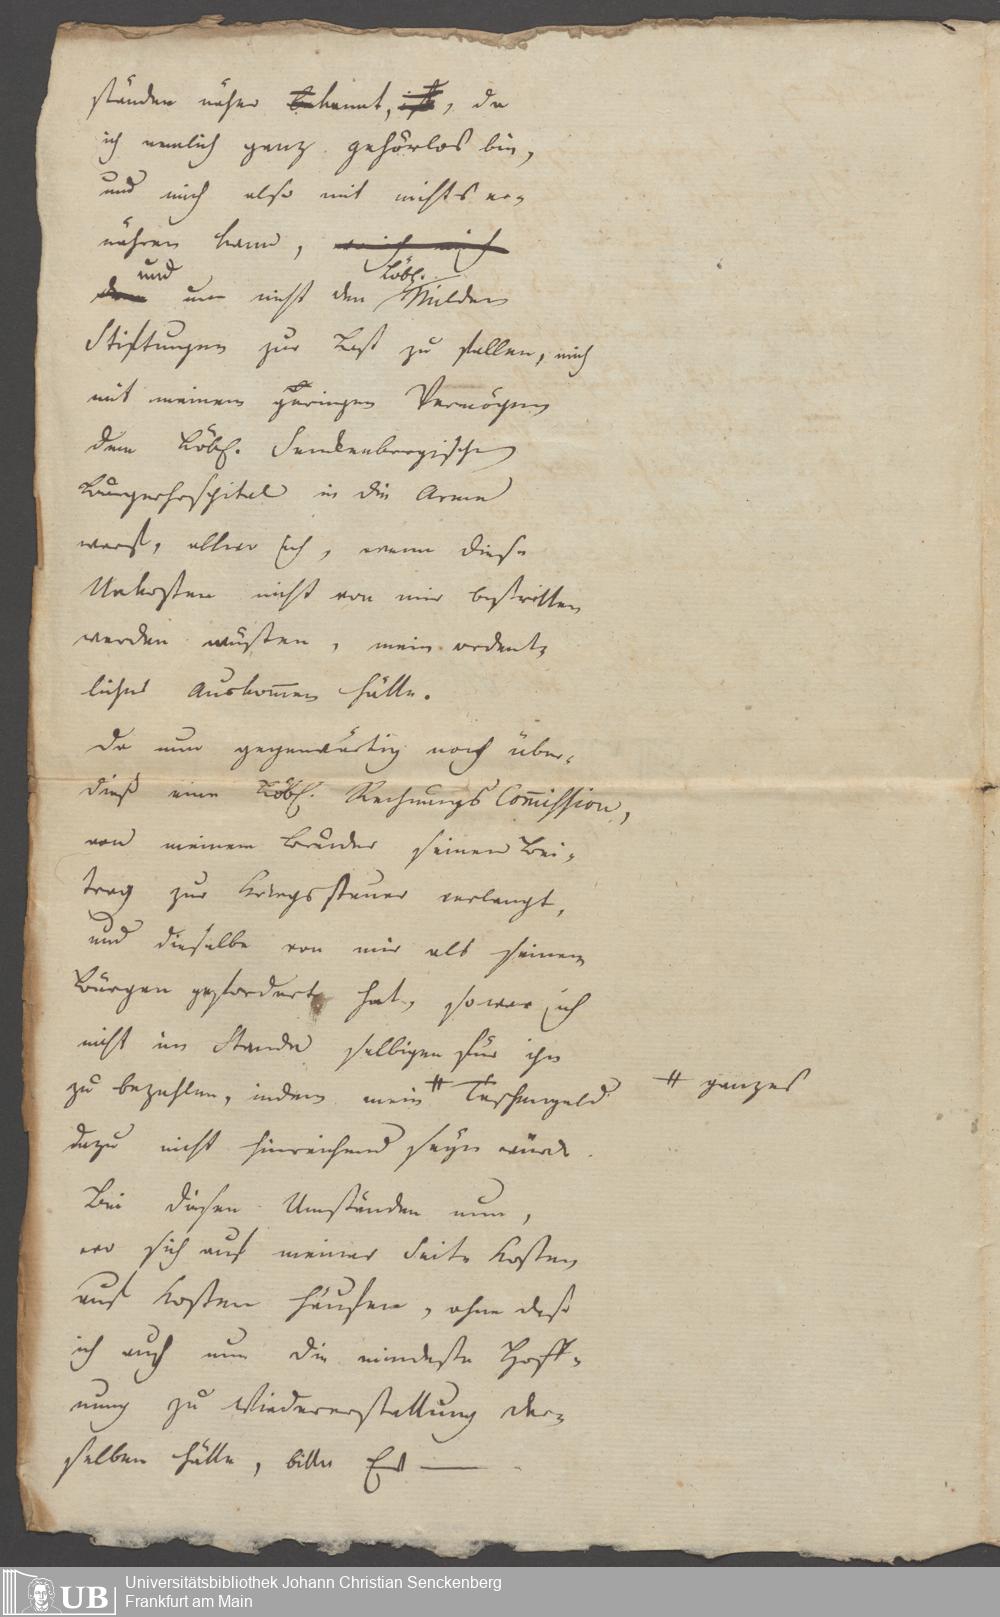 ständen näher bekannt, ist, da
ich nemlich ganz gehörlos bin,
und mich also mit nichts er-
nähren kann, mich
und um nicht den Löbl. Milden
Stiftungen zur Last zu fallen, mich
mit meinem geringen Vermögen
dem Löbl. Senckenbergischen
Bürgerhospital in die Arme
warf, allwo ich, wenn diese
Unkosten nicht von mir bestritten
werden müßten, mein ordent-
liches Auskom̅en hätte.
Da nun gegenwärtig noch über-
dieß eine Löbl. Rechnungs Com̅ission,
von meinem Bruder seinen Bei-
trag zur Kriegssteuer verlangt,
und dieselbe von mir als seinem
Bürgen gefordert hat, so war ich
nicht im Stande selbigen für ihn
zu bezahlen, indem mein # Taschengeld # ganzes
dazu nicht hinreichend seyn würde.
Bei diesen Umständen nun,
wo sich auf meiner Seite Kosten
auf Kosten häufen, ohne daß
ich auch nur die mindeste Hoff-
nung zu Wiedererstattung der-
selben hätte, bitte Ew —
UB
Universitätsbibliothek Johann Christian Senckenberg
Frankfurt am Main